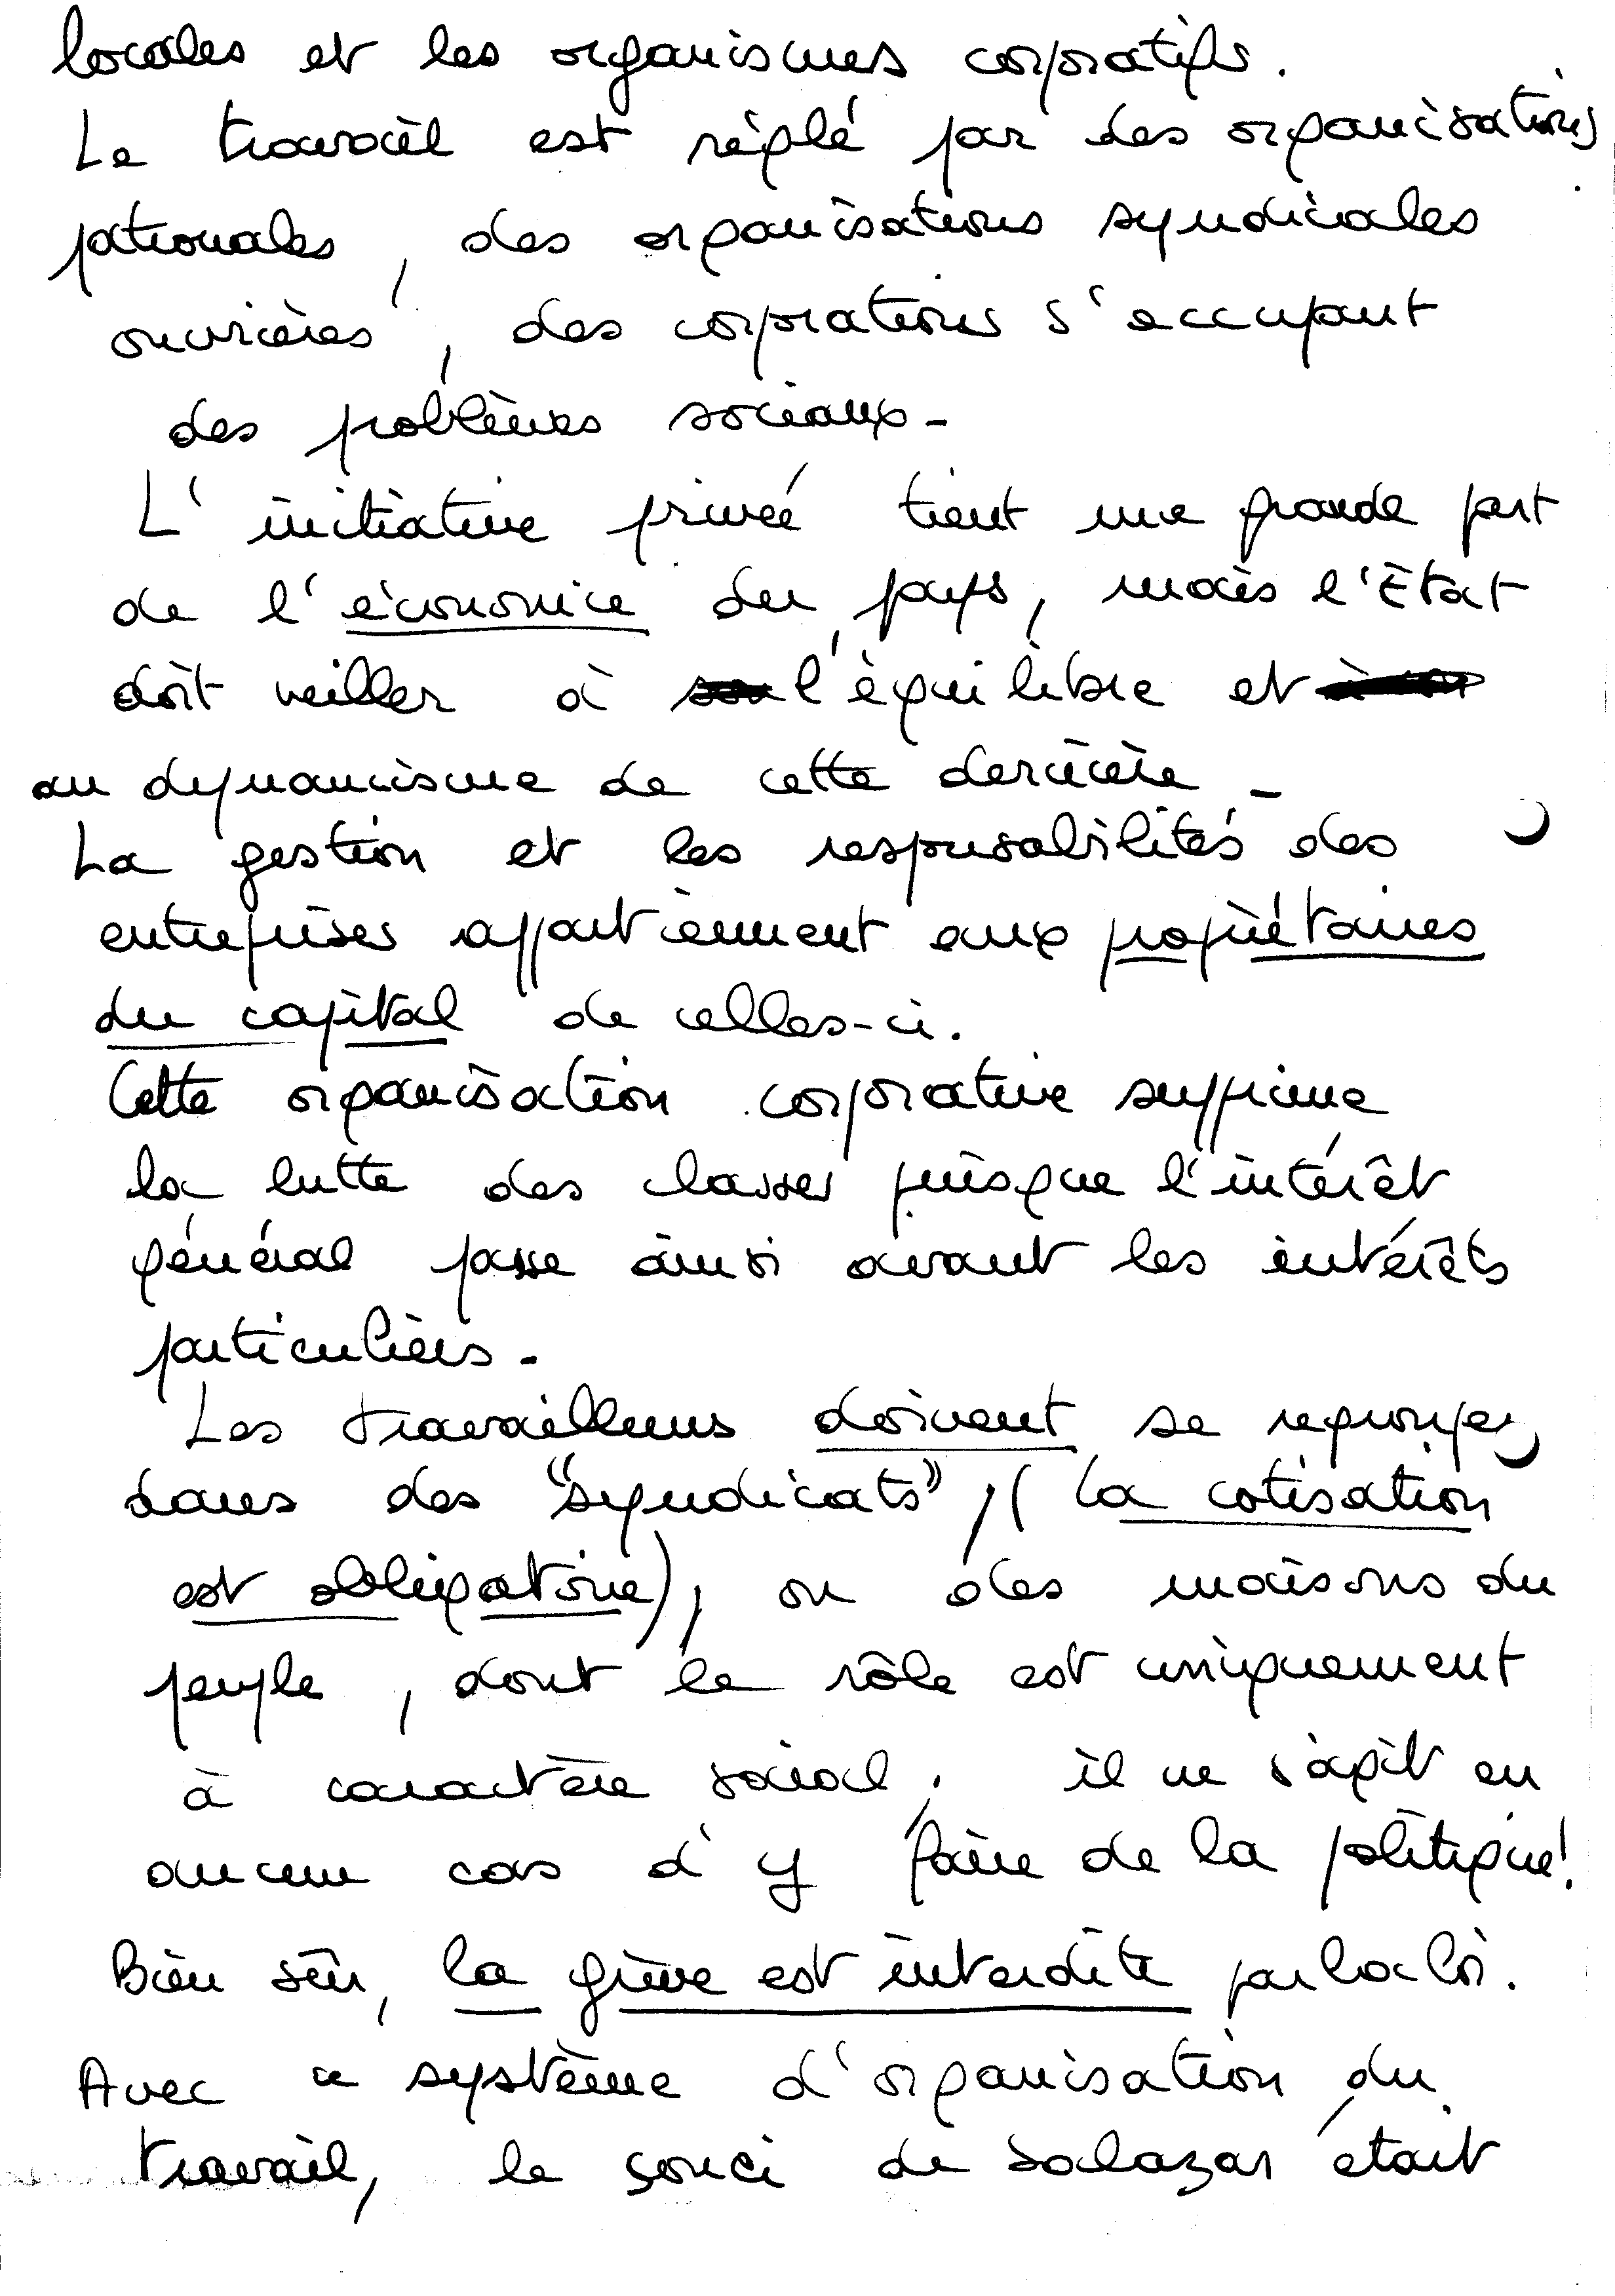 locales et les organismes corporatifs.
Le travail est réglé par des organisations
patronales, des organisations syndicales
ouvrières, des corporations s'occupant
des problèmes sociaux -
L'initiative privée tient une grande part
de l'économie du pays, mais l'État
doit veiller à l'équilibre et
au dynamisme de cette dernière -
La gestion et les responsabilités des
entreprises appartiennent aux propriétaires
du capital de celles-ci.
Cette organisation corporative supprime
la lutte des classes puisque l'intérêt
général passe ainsi avant les intérêts
particuliers -
Les travailleurs doivent se regrouper
dans des "syndicats", (la cotisation
est obligatoire), ou des maisons du
peuple, dont le rôle est uniquement
à caractère social, il ne s'agit en
aucun cas d'y faire de la politique!
Bien sûr, la grève est interdite par la loi.
Avec ce système d'organisation du
travail, le souci de Salazar était